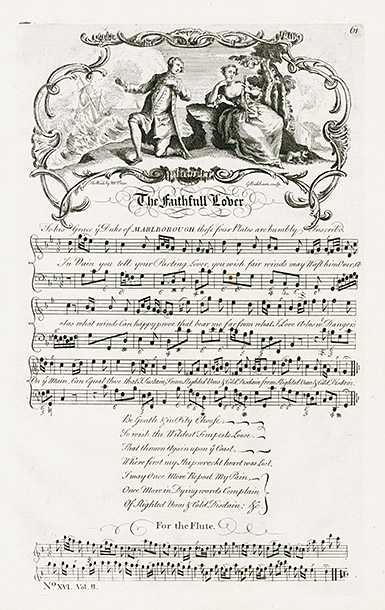 61
G Bickham sculp.
The Faithfull Lover
To his Grace ye Duke of MARLBOROUGH these four Plates are humbly Inscrib'd.
In Vain you tell your Parting Lover, you wish fair winds may Waft him Over, A
-las what winds Can happy prove that bear me far from what I Love Alas wt Dangers
On ye Main, Can Equal those that I Sustain, From Slighted Vows & Cold Disdain, from Slighted Vows & Cold Disdain.
Be Gentle & in Pity Choose
To wish the Wildest Tempests Loose
That thrown Again upon ye Coast,
Where first my Shipwreckt heart was Lost,
I may Once More Repeat My Pain
Once More in Dying words Complain
Of Slighted Vows & Cold Disdain: &c.
For the Flute.
No. XVI. Vol. II.